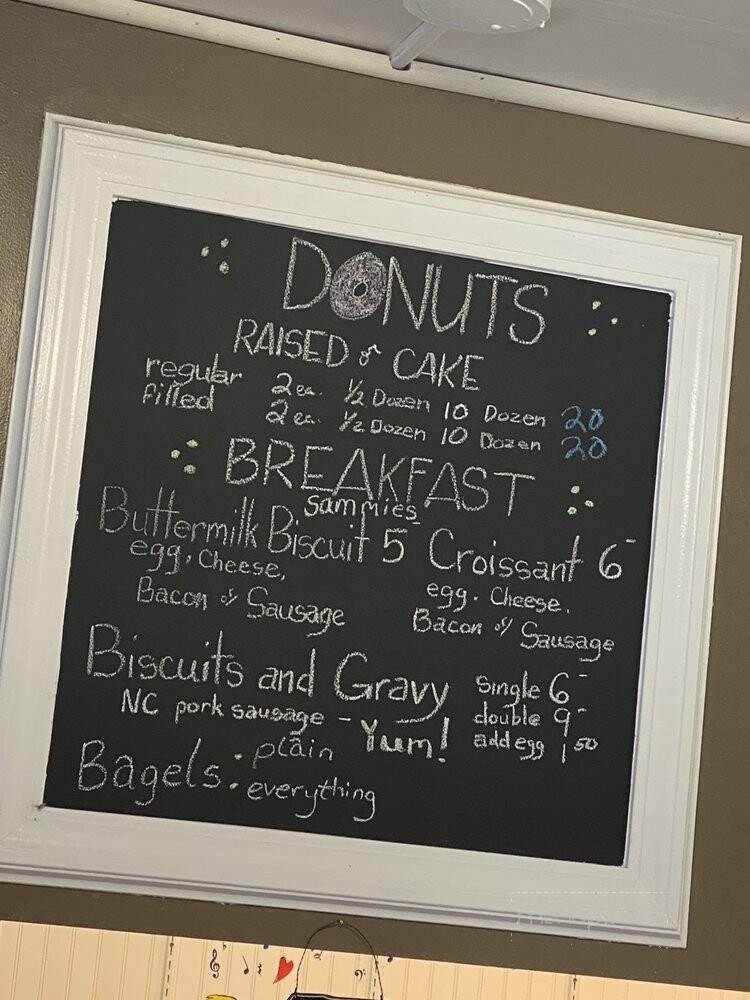 DONUTS
RAISED or CAKE
regular 2 ea. 1/2 Dozen 10 Dozen 20
filled 2 ea. 1/2 Dozen 10 Dozen 20
BREAKFAST
Sammies
Buttermilk Biscuit 5 Croissant 6-
egg, Cheese, egg. Cheese,
Bacon or Sausage Bacon or Sausage
Biscuits and Gravy single 6-
NC pork sausage - Yum! double 9-
add egg 1 50
Bagels · plain
· everything